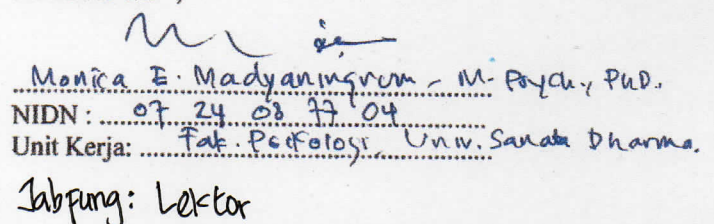 Monica E. Madyaningrum, M. Psych., PhD.
NIDN : 07 24 08 77 04
Unit Kerja: Fak. Psikologi, Univ. Sanata Dharma.
Jabfung: Lektor